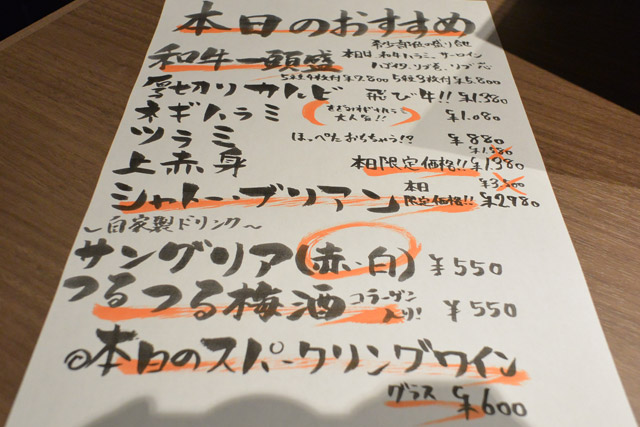 本日のおすすめ
希少部位の盛り合
和牛一頭盛 本日は 和牛ハラミ、サーロイン
5種4枚付¥2,800 5種8枚付¥5,800
厚切りカルビ 飛び牛!! ¥1,380
ネギハラミ 大人気!! ¥1,080
ツラミ ほっぺたおもちゃう!? ¥880
¥1,580
上赤身 本日限定価格!! ¥1,380
シャトー・ブリアン 本日限定価格!! ¥2980
〜自家製ドリンク〜
サングリア(赤・白) ¥550
つるつる梅酒 コラーゲン入り! ¥550
◎本日のスパークリングワイン
グラス ¥600